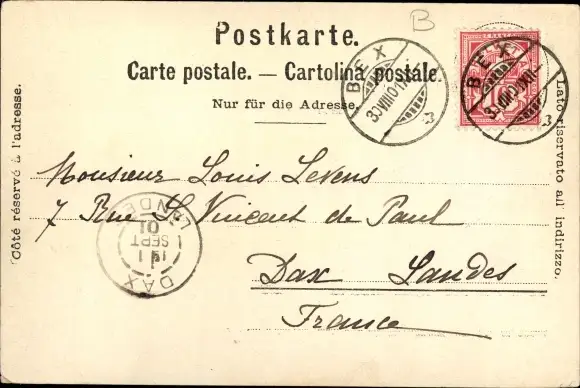 B
Postkarte.
Carte postale. — Cartolina postale.
Nur für die Adresse.
BEX
BEX
10
Côté réservé à l'adresse.
Lato riservato all' indirizzo.
Monsieur Louis Levens
7 Rue St Vincent de Paul
Dax Landes
France
DAX
SEPT
01
LANDES